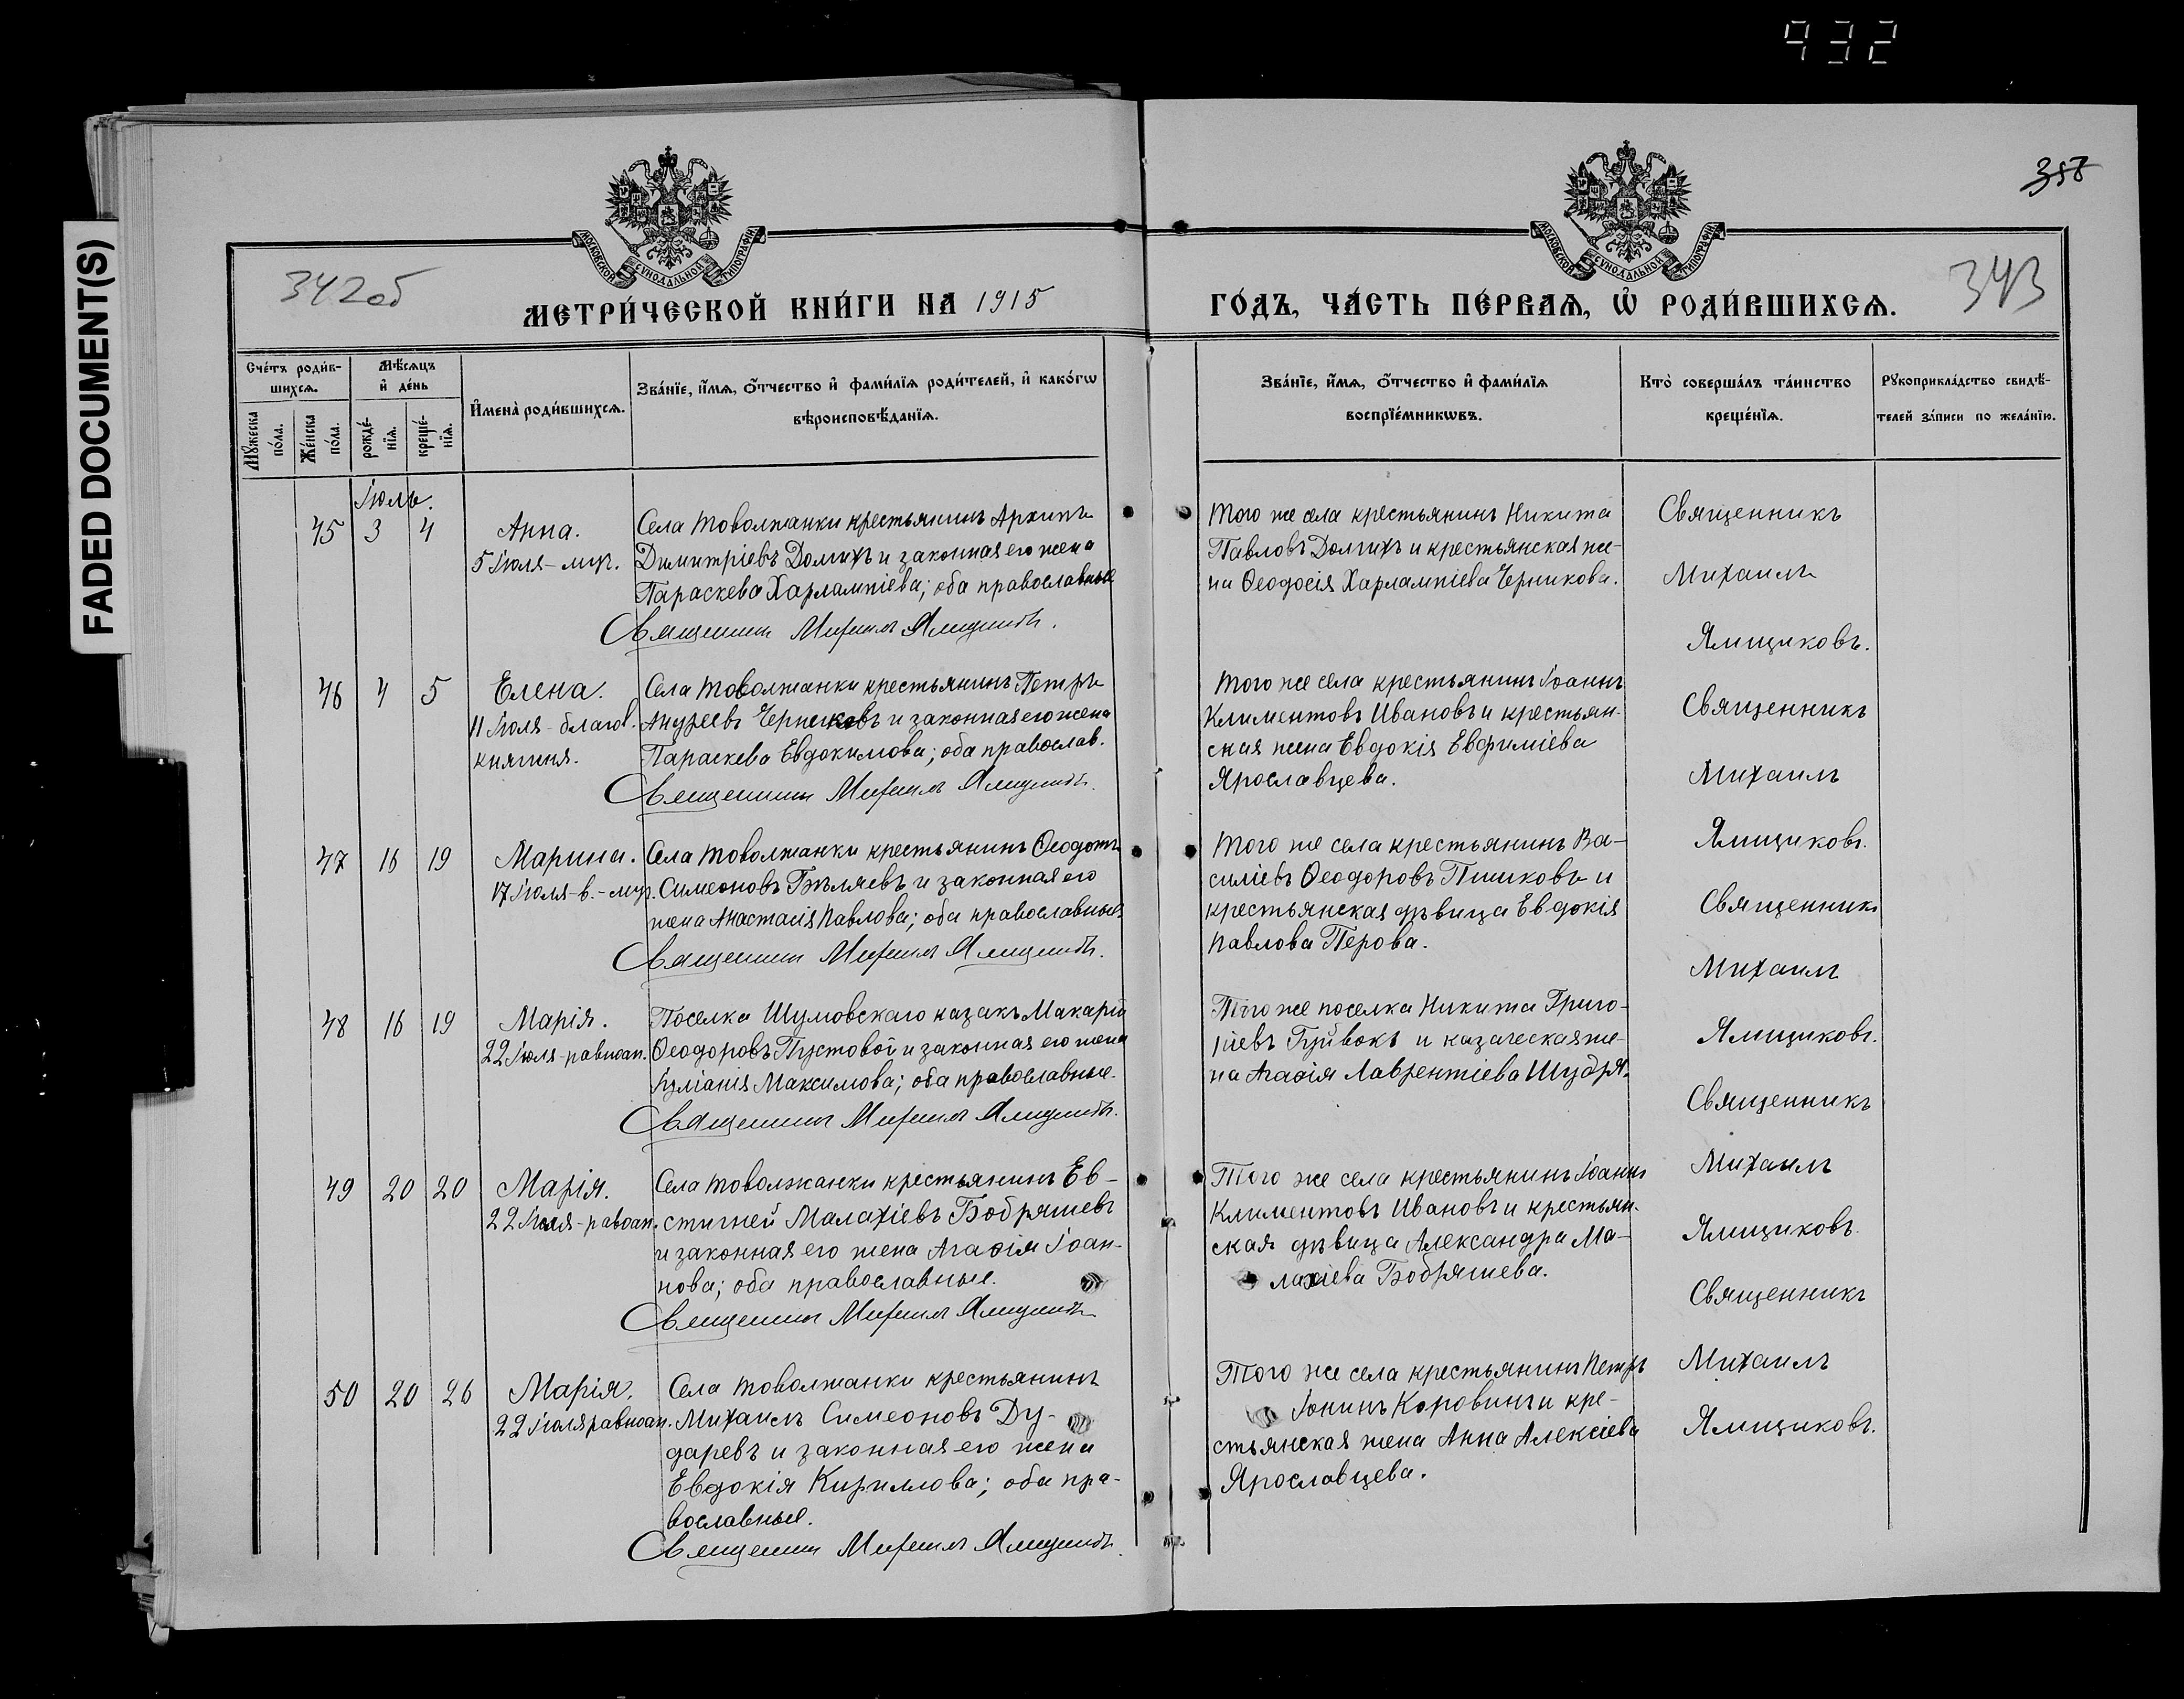 932
FADED DOCUMENT(S)
358
342об
343
МОСКОВСКОЙ СУНОДАЛЬНОЙ ТИПОГРАФІИ
МОСКОВСКОЙ СУНОДАЛЬНОЙ ТИПОГРАФІИ
МЕТРИ́ЧЕСКОЙ КНИ́ГИ НА 1915
ГО́ДЪ, ЧА́СТЬ ПЕ́РВАѦ, Ѡ РОДИ́ВШИХСѦ.
Сче́тъ роди́в-
шихсѧ.
Мꙋ́жеска
по́ла.
Же́нска
по́ла.
Мѣ́сѧцъ
и҆ де́нь
рожде́-
нїѧ.
креще́-
нїѧ.
И҆мена̀ роди́вшихсѧ.
Зва́нїе, и҆́мѧ, ѻ҆́тчество и҆ фами́лїѧ роди́телей, и҆ како́гѡ
вѣроисповѣ́данїѧ.
Зва́нїе, и҆́мѧ, ѻ҆́тчество и҆ фами́лїѧ
воспрїе́мникѡвъ.
Кто̀ соверша́лъ та́инство
креще́нїѧ.
Рꙋкоприкла́дство свидѣ́-
телей за́писи по жела́нїю.
Іюль.
45 3 4
Анна.
5 Іюля - муч.
Села Товолжанки крестьянинъ Архипъ
Димитріевъ Долгихъ и законная его жена
Параскева Харлампіева; оба православные
Священникъ Михаилъ Ямщиковъ.
Того же села крестьянинъ Никита
Павловъ Долгихъ и крестьянская же-
на Ѳеодосія Харлампіева Черникова.
Священникъ
Михаилъ
Ямщиковъ.
46 4 5
Елена.
11 Іюля - благов.
княгиня.
Села Товолжанки крестьянинъ Петръ
Андреевъ Черниковъ и законная его жена
Параскева Евдокимова; оба православ.
Священникъ Михаилъ Ямщиковъ.
Того же села крестьянинъ Іоаннъ
Климентовъ Ивановъ и крестьян-
ская жена Евдокія Евфиміева
Ярославцева.
Священникъ
Михаилъ
Ямщиковъ.
47 16 19
Марина.
17 Іюля - в.-муч.
Села Товолжанки крестьянинъ Ѳеодотъ
Симеоновъ Бѣляевъ и законная его
жена Анастасія Павлова; оба православные
Священникъ Михаилъ Ямщиковъ.
Того же села крестьянинъ Ва-
силіевъ Ѳеодоровъ Пишковъ и
крестьянская дѣвица Евдокія
Павлова Перова.
Священникъ
Михаилъ
Ямщиковъ.
48 16 19
Марія.
22 Іюля - равноап.
Поселка Шумовскаго казакъ Макарій
Ѳеодоровъ Пустовой и законная его жена
Іуліанія Максимова; оба православные.
Священникъ Михаилъ Ямщиковъ.
Того же поселка Никита Григо-
ріевъ Буйвокъ и казаческая же-
на Агаѳія Лаврентіева Шудря.
Священникъ
Михаилъ
Ямщиковъ.
49 20 20
Марія.
22 Іюля - равоап.
Села Товолжанки крестьянинъ Ев-
стигней Малахіевъ Бобряшевъ
и законная его жена Агаѳія Іоан-
нова; оба православные.
Священникъ Михаилъ Ямщиковъ
Того же села крестьянинъ Іоаннъ
Климентовъ Ивановъ и крестьян-
ская дѣвица Александра Ма-
лахіева Бобряшева.
Священникъ
Михаилъ
Ямщиковъ.
50 20 26
Марія.
22 Іюля равноап.
Села Товолжанки крестьянинъ
Михаилъ Симеоновъ Ду-
даревъ и законная его жена
Евдокія Кириллова; оба пра-
вославные.
Священникъ Михаилъ Ямщиковъ.
Того же села крестьянинъ Петръ
Іонинъ Коровинъ и кре-
стьянская жена Анна Алексіева
Ярославцева.